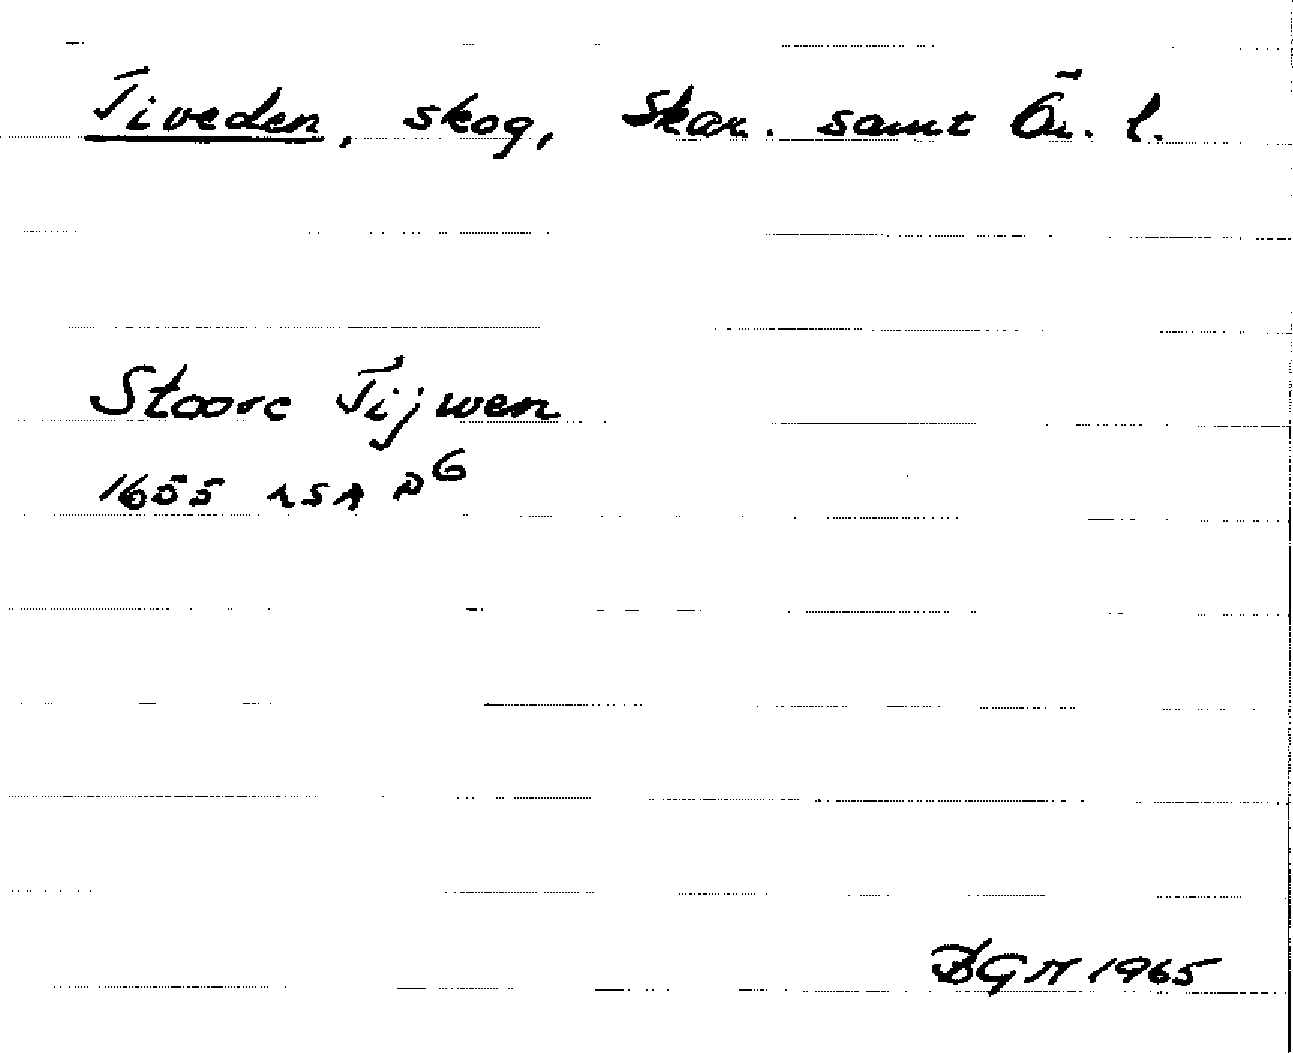 Tiveden, skog, Skar. samt Ör. l.
Stoore Tijwen
1655 LSA D6
BGM 1965